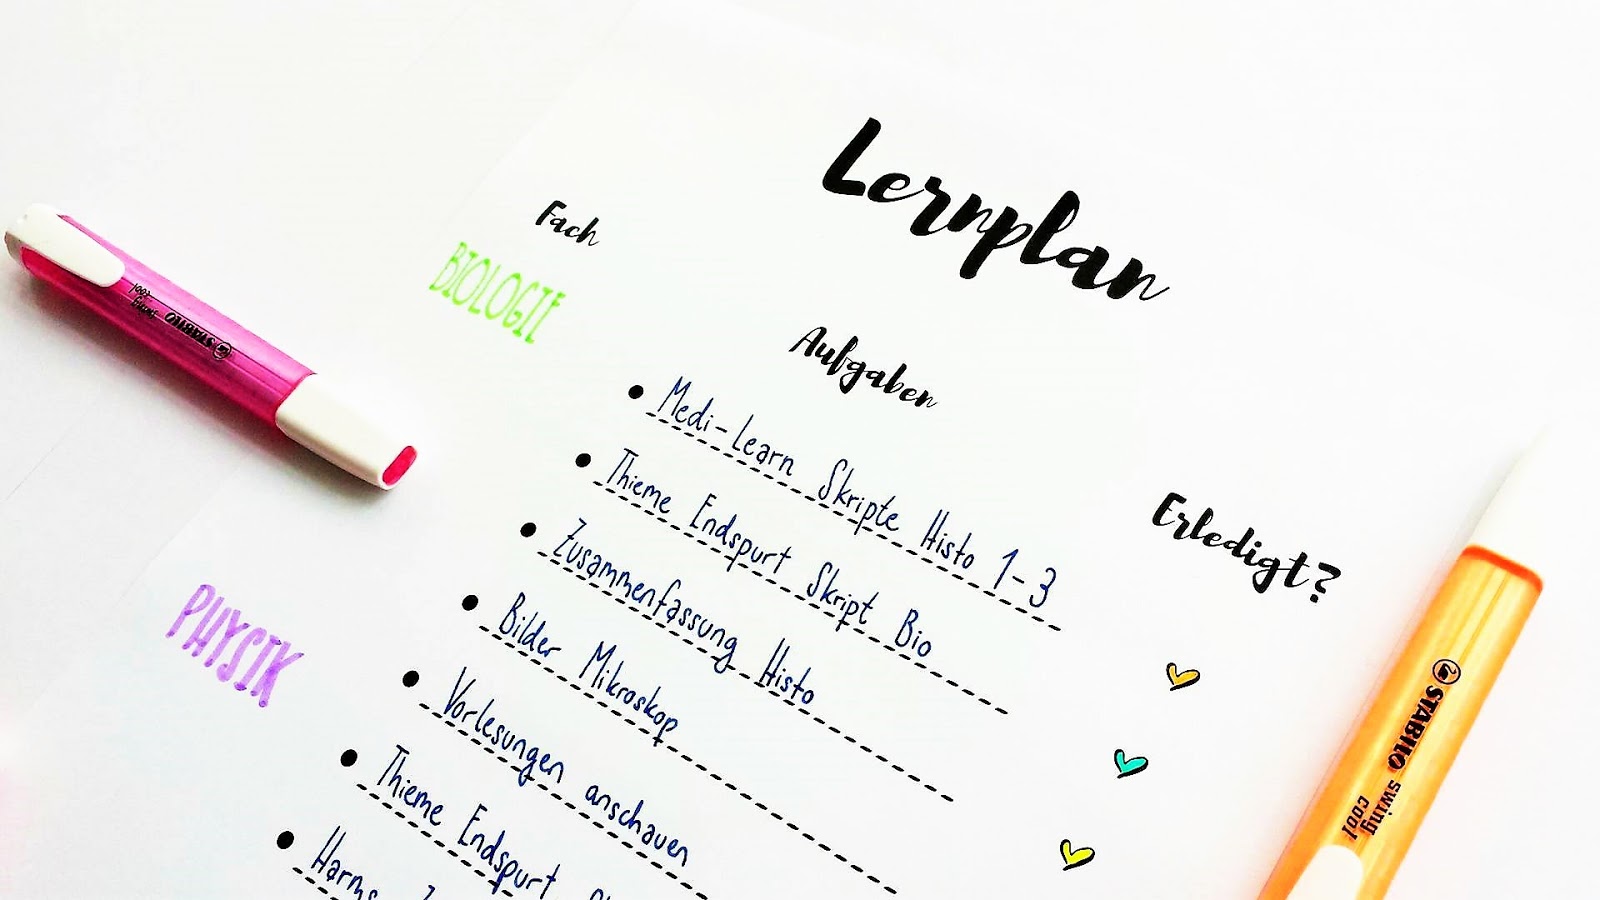 Lernplan
Fach
Aufgaben
Erledigt?
BIOLOGIE
Medi-Learn Skripte Histo 1-3
Thieme Endspurt Skript Bio
Zusammenfassung Histo
Bilder Mikroskop
PHYSIK
Vorlesungen anschauen
Thieme Endspurt
Harms
STABILO
STABILO swing cool